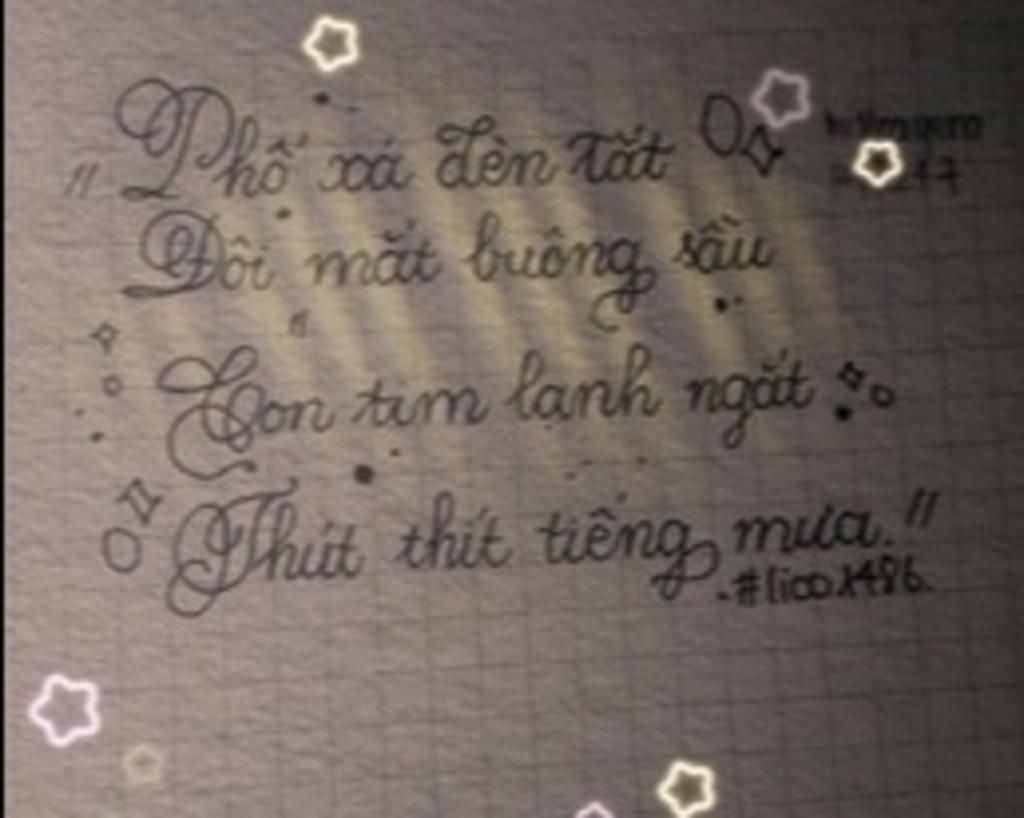 "Phố xá đèn tắt
Đôi mắt buông sầu
Con tim lạnh ngắt
Thút thít tiếng mưa."
-#lico1486.